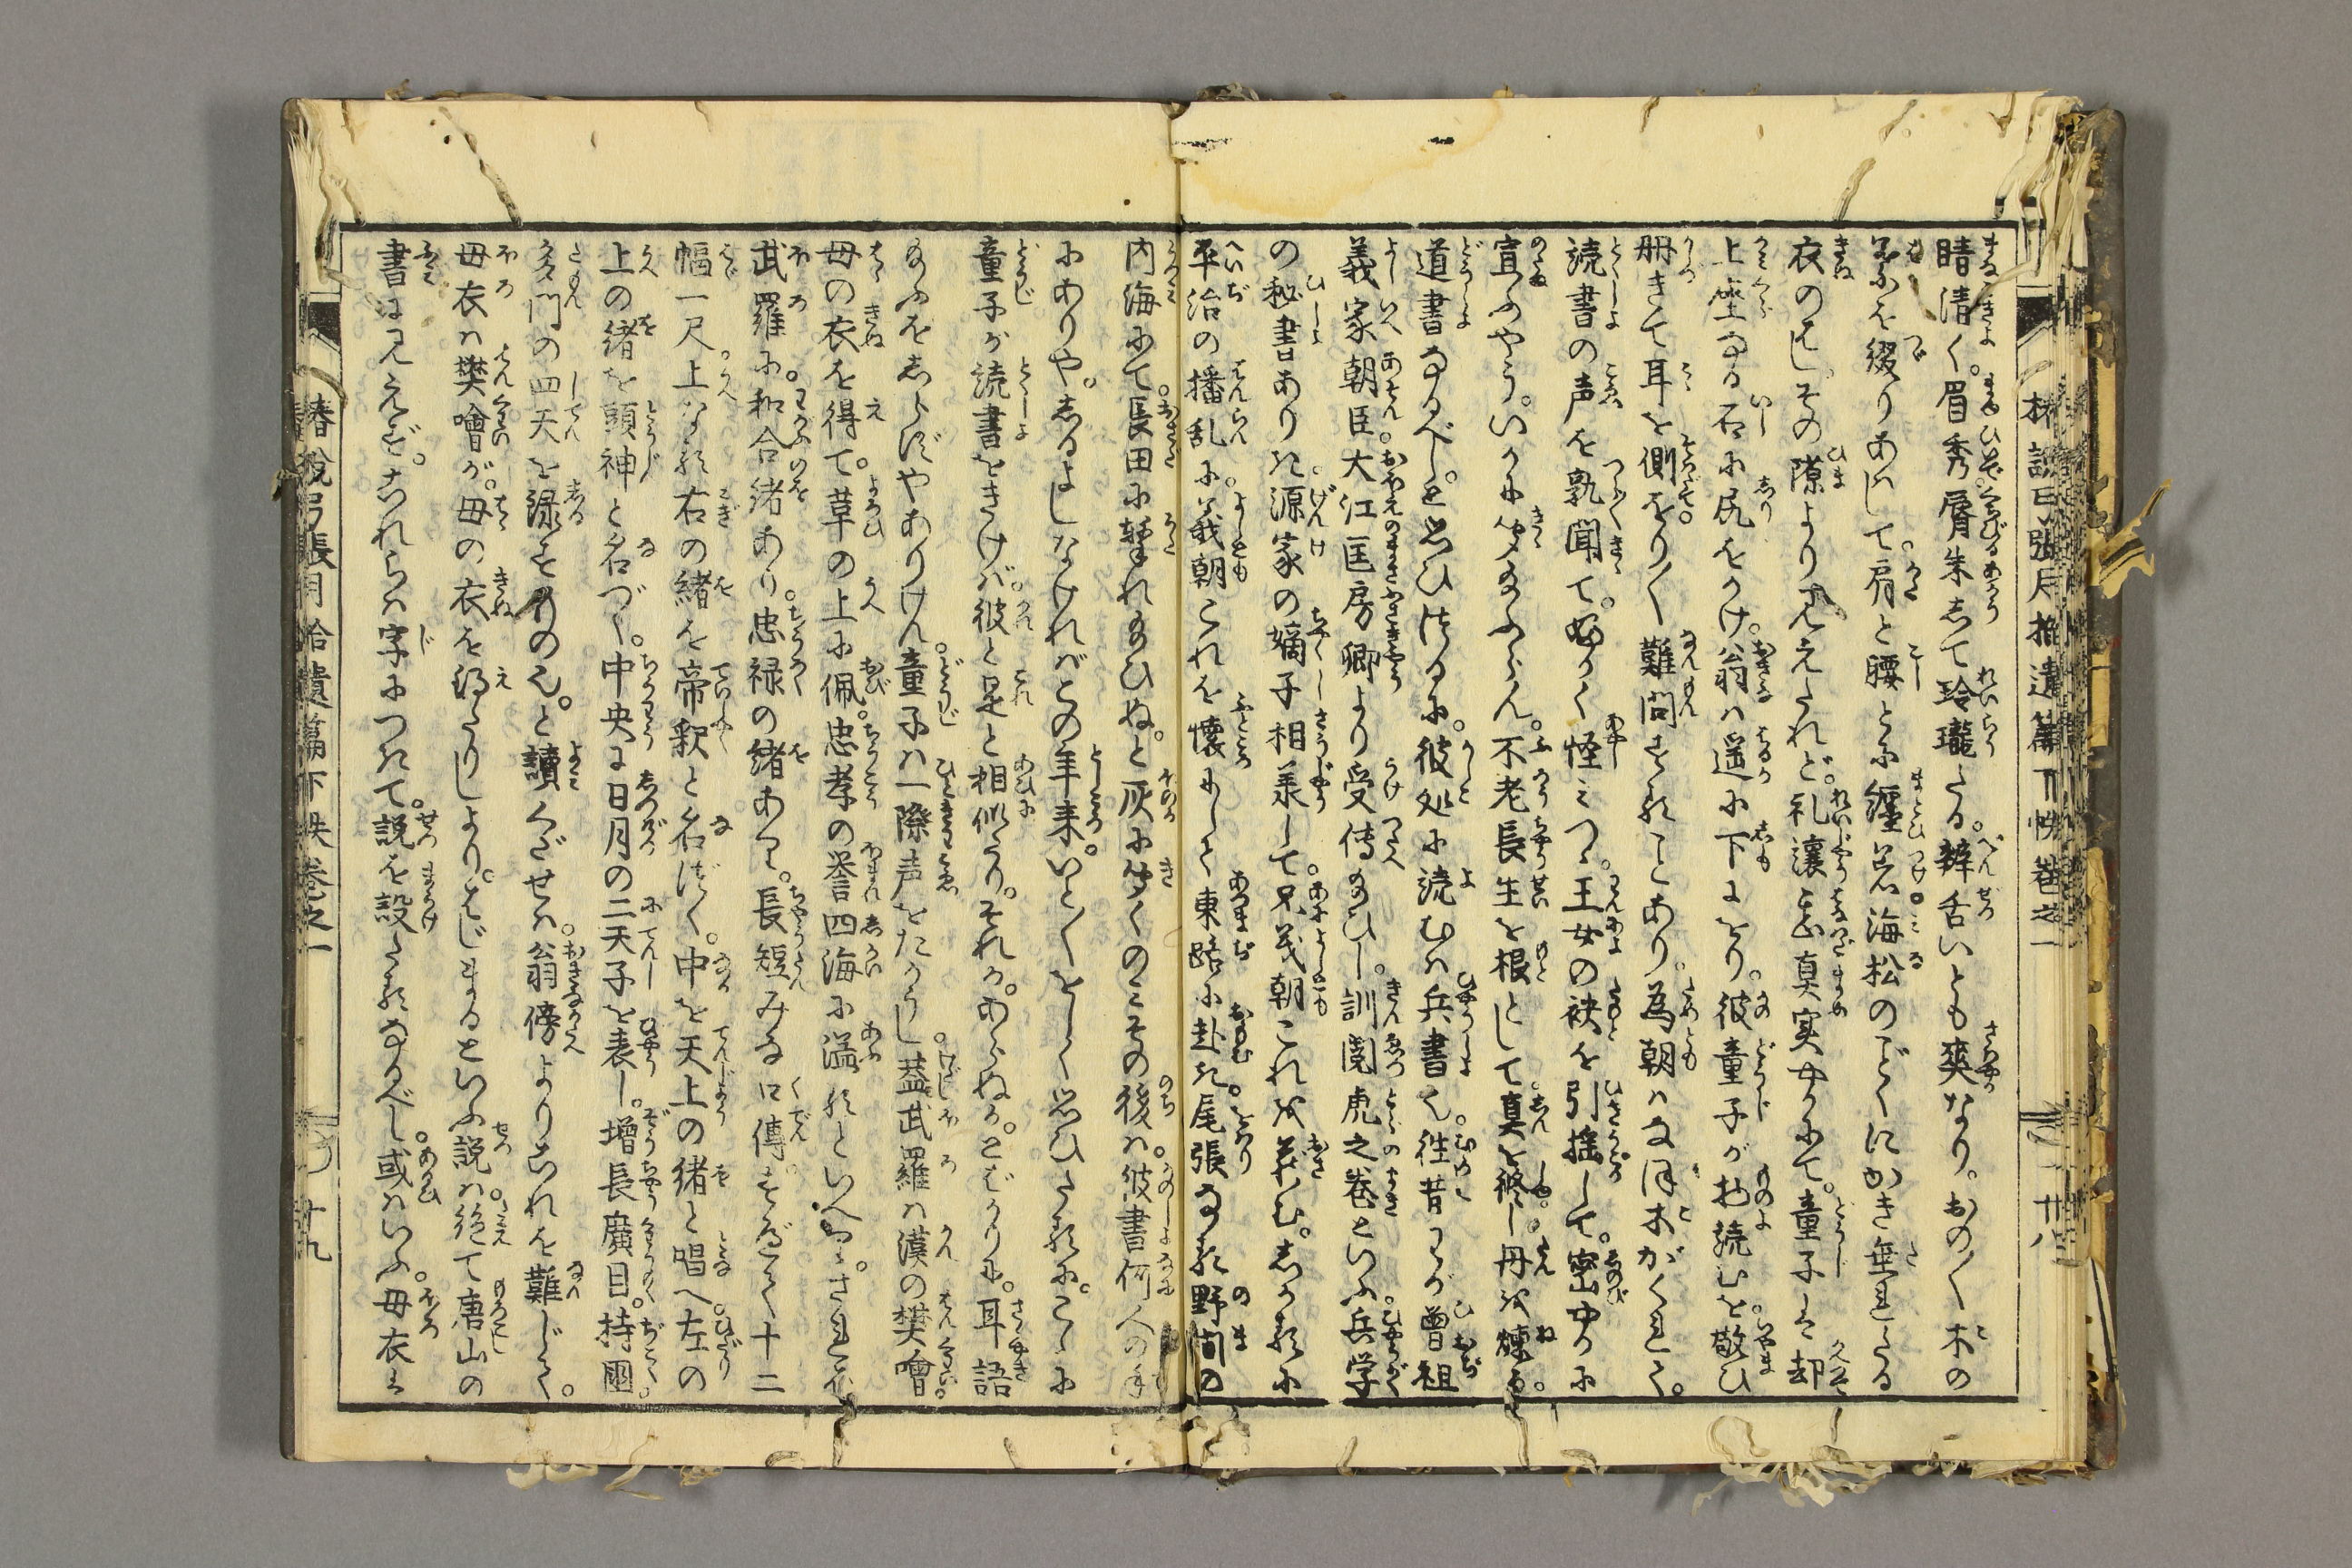 椿説弓張月拾遺篇下帙巻之一 廿八
睛清く。眉秀。唇朱して玲瓏たる。辨舌いとも爽なり。おの〳〵木の
葉を綴りあはして。肩と腰とに纏著。海松のごとにかき垂れたる
衣のみし。その隙より見えたれど。礼讓正真実やかにて。童子は却
上坐なる石に尻をかけ。翁は遥に下にをり。彼童子が物読むを。敬ひ
冊きて耳を側。をり〳〵難問することあり。為朝はなほ木がくれて。
読書の声を熟聞て。ふかく怪みつゝ。王女の袂を引揺して。密やかに
宣ふやう。いかに聞給ふらん。不老長生を根として。真を修し。丹を煉る。
道書なるべしと思ひつるに。彼処に読むは兵書也。往昔わが曾祖
義家朝臣。大江匡房卿より受傳給ひし。訓閲虎之巻といふ。兵学
の秘書ありき。源家の嫡子相承して。兄義朝これを蔵む。しかるに
平治の播乱に。義朝これを懐にして東路に赴き。尾張なる野間の
内海にて。長田に撃れ給ひぬ。と灰に聞くのみその後は。彼書何人の手
にありや。しるよしなければこの年来。いと〳〵をしく思ひたるに。こゝに
童子が読書をきけば。彼と是と相似たり。それか。あらぬか。とばかりに。耳語
給ふをしらずやありけん。童子は一際声をたかうし。蓋武羅は漢の樊噲。
母の衣を得て。草の上に佩。忠孝の誉四海に溢るといへり。されば
武羅に和合緒あり。忠禄の緒あり。長短みな口傳。すべて十二
幅一尺。上なる右の緒を帝釈と名づく。中を天上の緒と唱へ。左の
上の緒を頭神と名づく。中央に日月の二天子を表し。増長廣目。持國。
多門の四天を録すもの也。と讀くだせば。翁傍よりこれを難じて。
母衣は樊噲が。母の衣を得たりしより。はじまるといふ説は。絶て唐山の
書に見えず。これらは字につきて。説を設たるなるべし。或はいふ。母衣は
椿説弓張月拾遺篇下帙巻之一 廿九